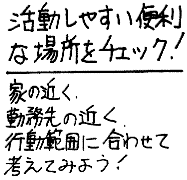 活動しやすい便利
な場所をチェック!
家の近く、
勤務先の近く、
行動範囲に合わせて
考えてみよう!